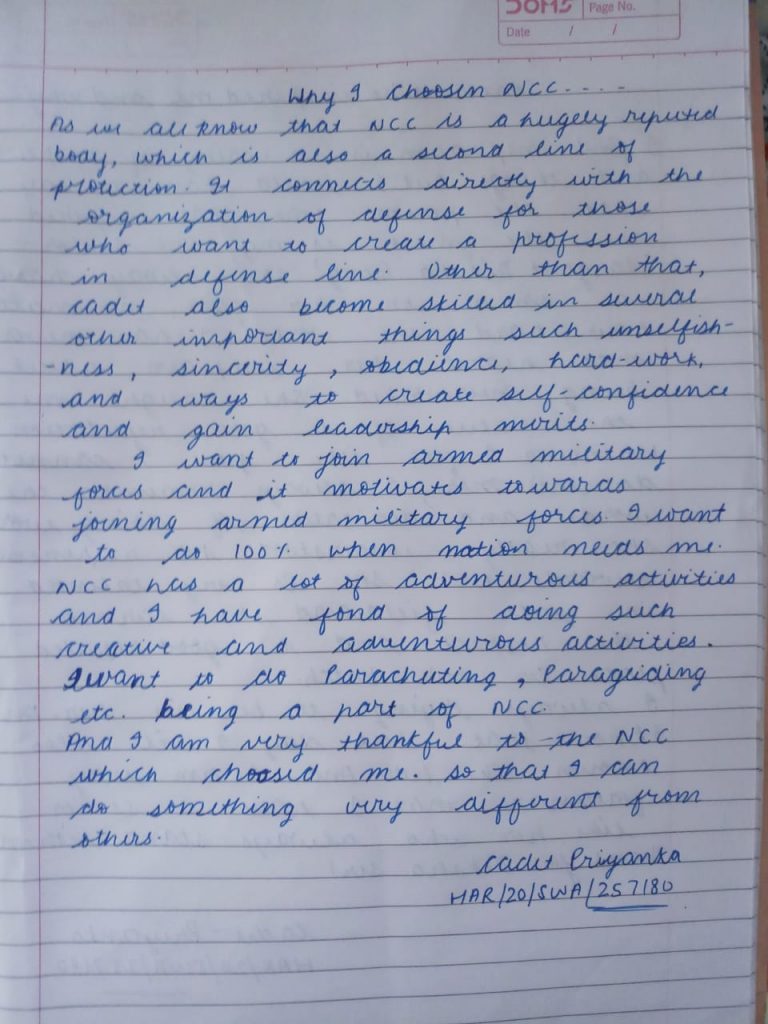 DOMS
Page No.
Date / /
Why I choosen NCC....
As we all know that NCC is a hugely reputed
body, which is also a second line of
protection. It connects directly with the
organization of defense for those
who want to create a profession
in defense line. Other than that,
cadet also become skilled in several
other important things such unselfish-
-ness, sincerity, obedience, hard-work,
and ways to create self-confidence
and gain leadership merits.
I want to join armed military
forces and it motivates towards
joining armed military forces. I want
to do 100% when nation needs me.
NCC has a lot of adventurous activities
and I have fond of doing such
creative and adventurous activities.
I want to do Parachuting, Paragliding
etc. being a part of NCC.
And I am very thankful to the NCC
which choosed me. so that I can
do something very different from
others.
Cadet Priyanka
HAR/20/SWA/257180